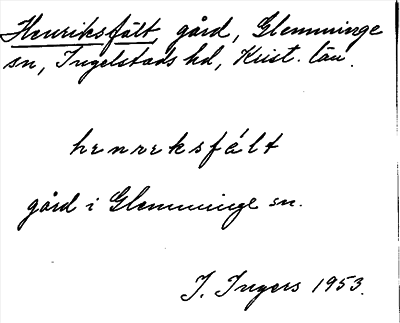 Henriksfält, gård, Glemminge
sn, Ingelstads hd, Krist. län.
henreksfält
gård i Glemminge sn.
I. Ingers 1953.